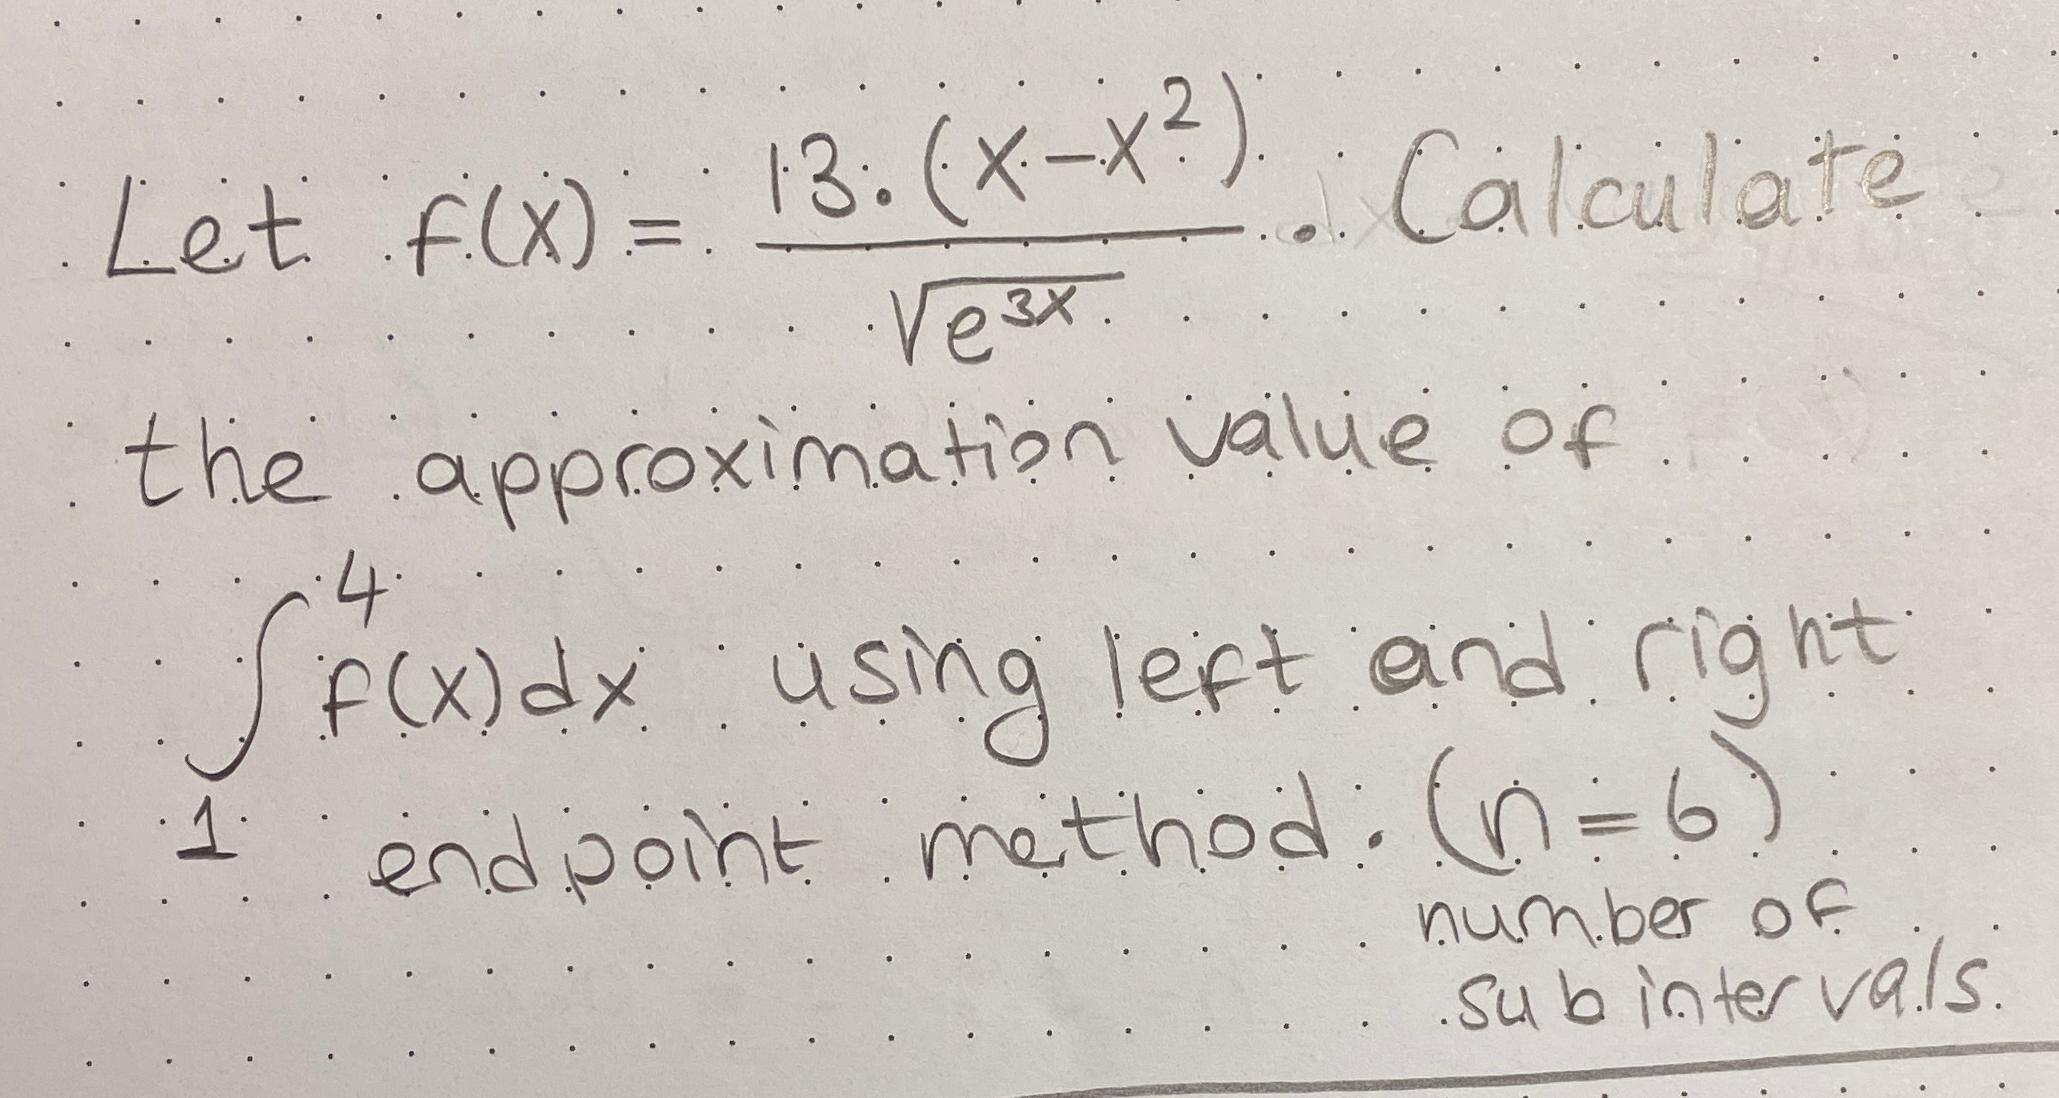 Let f(x) = 13.(x-x²) / √e^3x . Calculate
the approximation value of
∫₁⁴ f(x)dx using left and right
endpoint method. (n=6)
number of
subintervals.